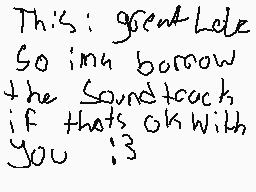 This: great hdc
So ima borrow
the Soundtrack
if thats ok with
you :3